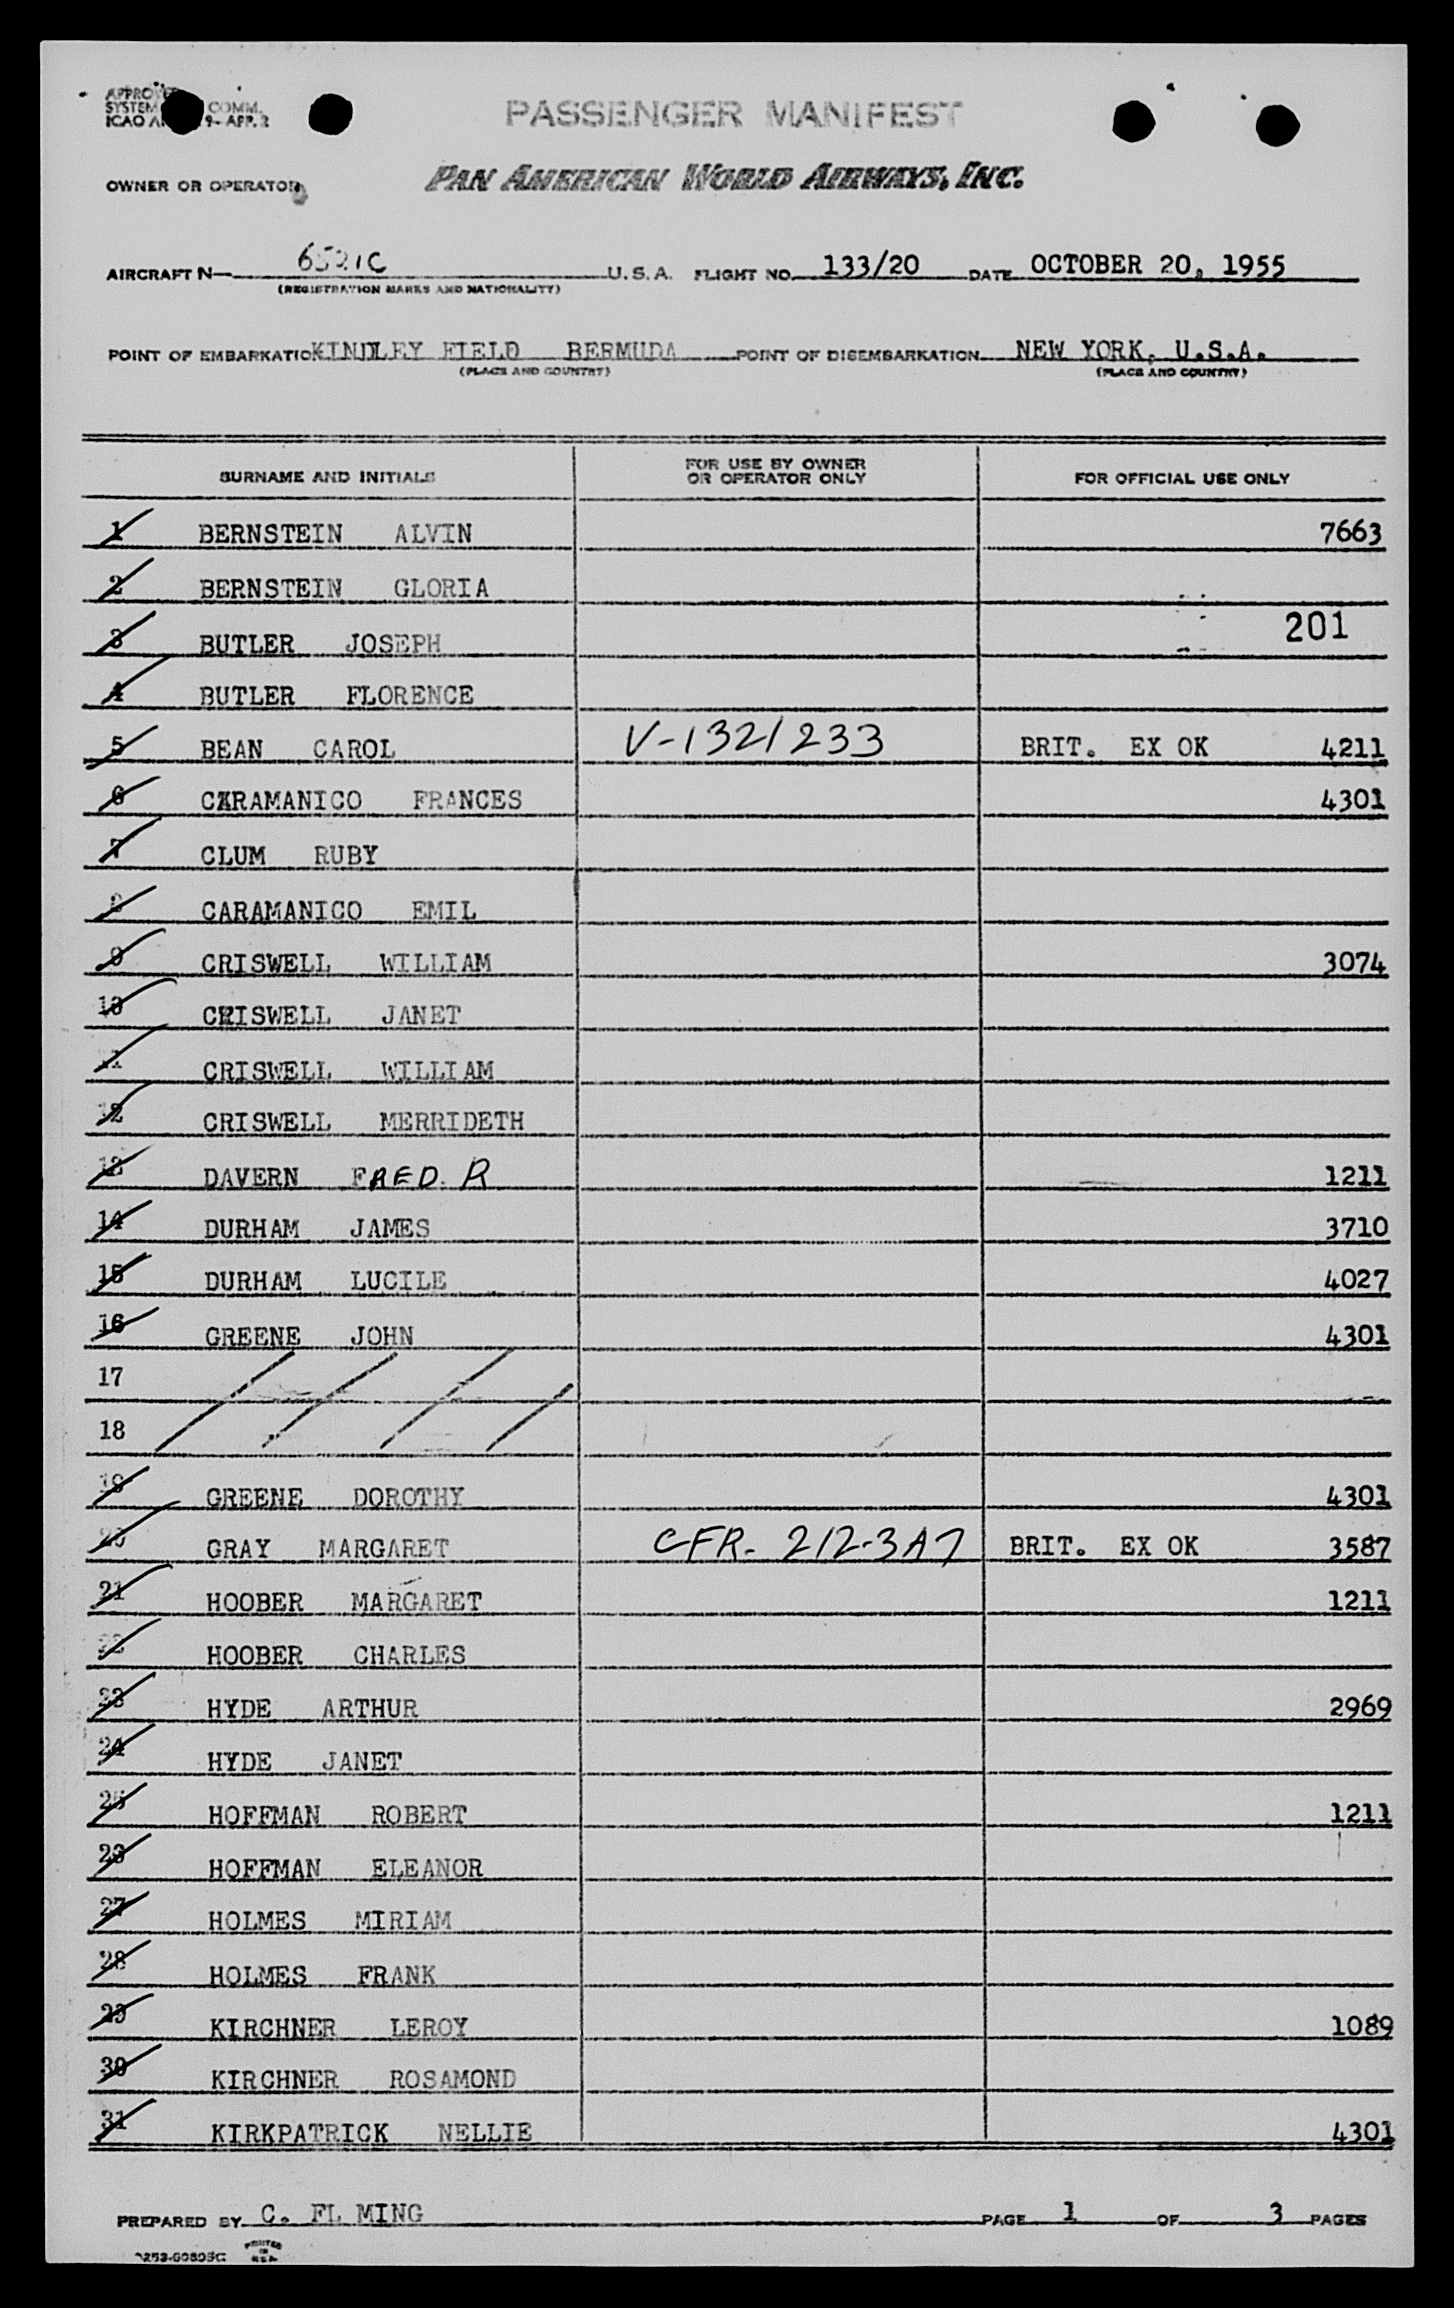 PASSENGER MANIFEST
OWNER OR OPERATOR PAN AMERICAN WORLD AIRWAYS, INC.
AIRCRAFT N— 6521C U.S.A. FLIGHT NO. 133/20 DATE OCTOBER 20, 1955
(REGISTRATION MARKS AND NATIONALITY)
POINT OF EMBARKATIO KINDLEY FIELD BERMUDA POINT OF DISEMBARKATION NEW YORK, U.S.A.
(PLACE AND COUNTRY) (PLACE AND COUNTRY)
SURNAME AND INITIALS FOR USE BY OWNER OR OPERATOR ONLY FOR OFFICIAL USE ONLY
1 BERNSTEIN ALVIN 7663
2 BERNSTEIN GLORIA
201
3 BUTLER JOSEPH
4 BUTLER FLORENCE
5 BEAN CAROL V-1321233 BRIT. EX OK 4211
6 CARAMANICO FRANCES 4301
7 CLUM RUBY
8 CARAMANICO EMIL
9 CRISWELL WILLIAM 3074
10 CRISWELL JANET
11 CRISWELL WILLIAM
12 CRISWELL MERRIDETH
13 DAVERN FRED. R 1211
14 DURHAM JAMES 3710
15 DURHAM LUCILE 4027
16 GREENE JOHN 4301
17
18
19 GREENE DOROTHY 4301
20 GRAY MARGARET CFR- 212-3A7 BRIT. EX OK 3587
21 HOOBER MARGARET 1211
22 HOOBER CHARLES
23 HYDE ARTHUR 2969
24 HYDE JANET
25 HOFFMAN ROBERT 1211
26 HOFFMAN ELEANOR
27 HOLMES MIRIAM
28 HOLMES FRANK
29 KIRCHNER LEROY 1089
30 KIRCHNER ROSAMOND
31 KIRKPATRICK NELLIE 4301
PREPARED BY C. FL MING PAGE 1 OF 3 PAGES
PRINTED IN U.S.A.